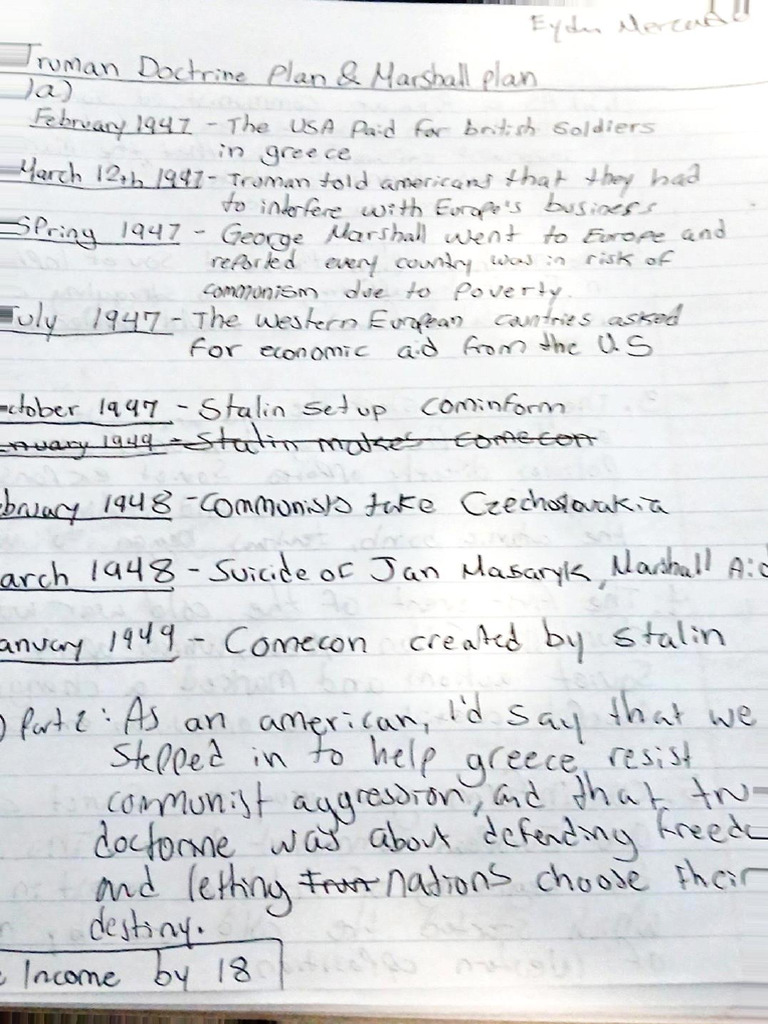 Eydn Mercado
Truman Doctrine Plan & Marshall plan
1a)
February 1947 - The USA Paid for british soldiers
in greece
March 12th 1947 - Truman told americans that they had
to interfere with Europe's business
Spring 1947 - George Marshall went to Europe and
reported every country was in risk of
commonism due to Poverty.
July 1947 - The western European countries asked
for economic aid from the U.S
ctober 1947 - Stalin set up cominform
nuary 1949 - Stalin makes comecon
bruary 1948 - Communists take Czechoslovakia
arch 1948 - Suicide of Jan Masaryk, Marshall Aid
anuary 1949 - Comecon created by Stalin
) Part 2: As an american, I'd say that we
stepped in to help greece resist
communist aggression, and that tru
doctorine was about defending freedo
and letting nations choose their
destiny.
Income by 18